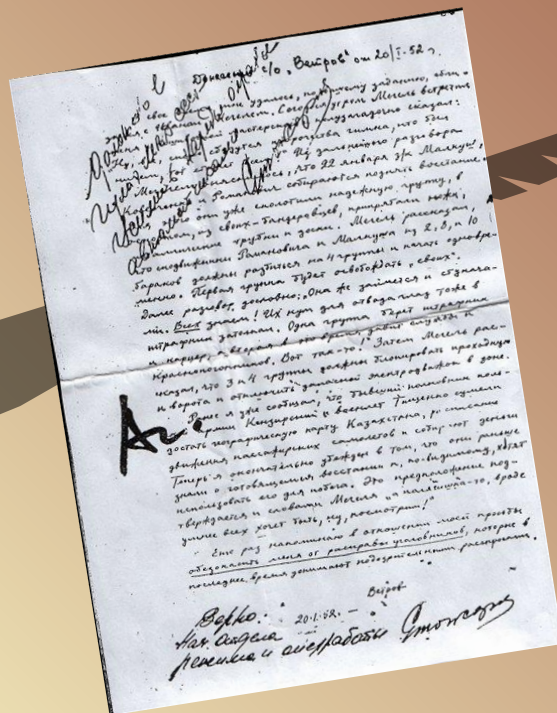 Донесение с/о „Ветров" от 20/I-52 г.
В свое время мне удалось, по вашему заданию, сбли-
зиться с Мегелем. Сегодня утром Мегель встретил
меня у пошивочной мастерской и полузагадочно сказал:
„Ну, все, гимна, кто был
ничем, тот станет всем!" Из дальнейшего разговора
с Мегелем выяснилось, что 22 января з/к Малкуш,
собираются поднять восстание.
Для этого они уже сколотили надежную группу, в
основном, из своих - бандеровцев, припрятали ножи,
металлические трубки и доски. Мегель рассказал,
что сподвижники Романовича и Малкуша из 2, 8, и 10
бараков должны разбиться на 4 группы и начать одновре-
менно. Первая группа будет освобождать „своих".
Далее разговор дословно: „Она же займется и стукача-
ми. Всех знаем! Их кум для отвода глаз тоже в
штрафник затолкал. Одна группа берет штрафник
и карцер, а вторая в это время давит службы и
краснопогонников. Вот так-то!" Затем Мегель рас-
сказал, что 3 и 4 группы должны блокировать проходную
и ворота и отключить запасной электродвижок в зоне.
Ранее я уже сообщал, что бывший полковник поль-
ской армии Кензирский и военлет Тищенко сумели
достать географическую карту Казахстана, расписание
движения пассажирских самолетов и собирают деньги
Теперь я окончательно убежден в том, что они раньше
знали о готовящемся восстании и, по-видимому, хотят
использовать его для побега. Это предположение под-
тверждается и словами Мегеля „а полячишка-то, вроде
умнее всех хочет быть, ну, посмотрим!"
Еще раз напоминаю в отношении моей просьбы
обезопасить меня от расправы уголовников, которые в
последнее время донимают подозрительными расспросами.
Ветров
20.1.52. –
Верно:
Нач. отдела
режима и оперработы Стожаров